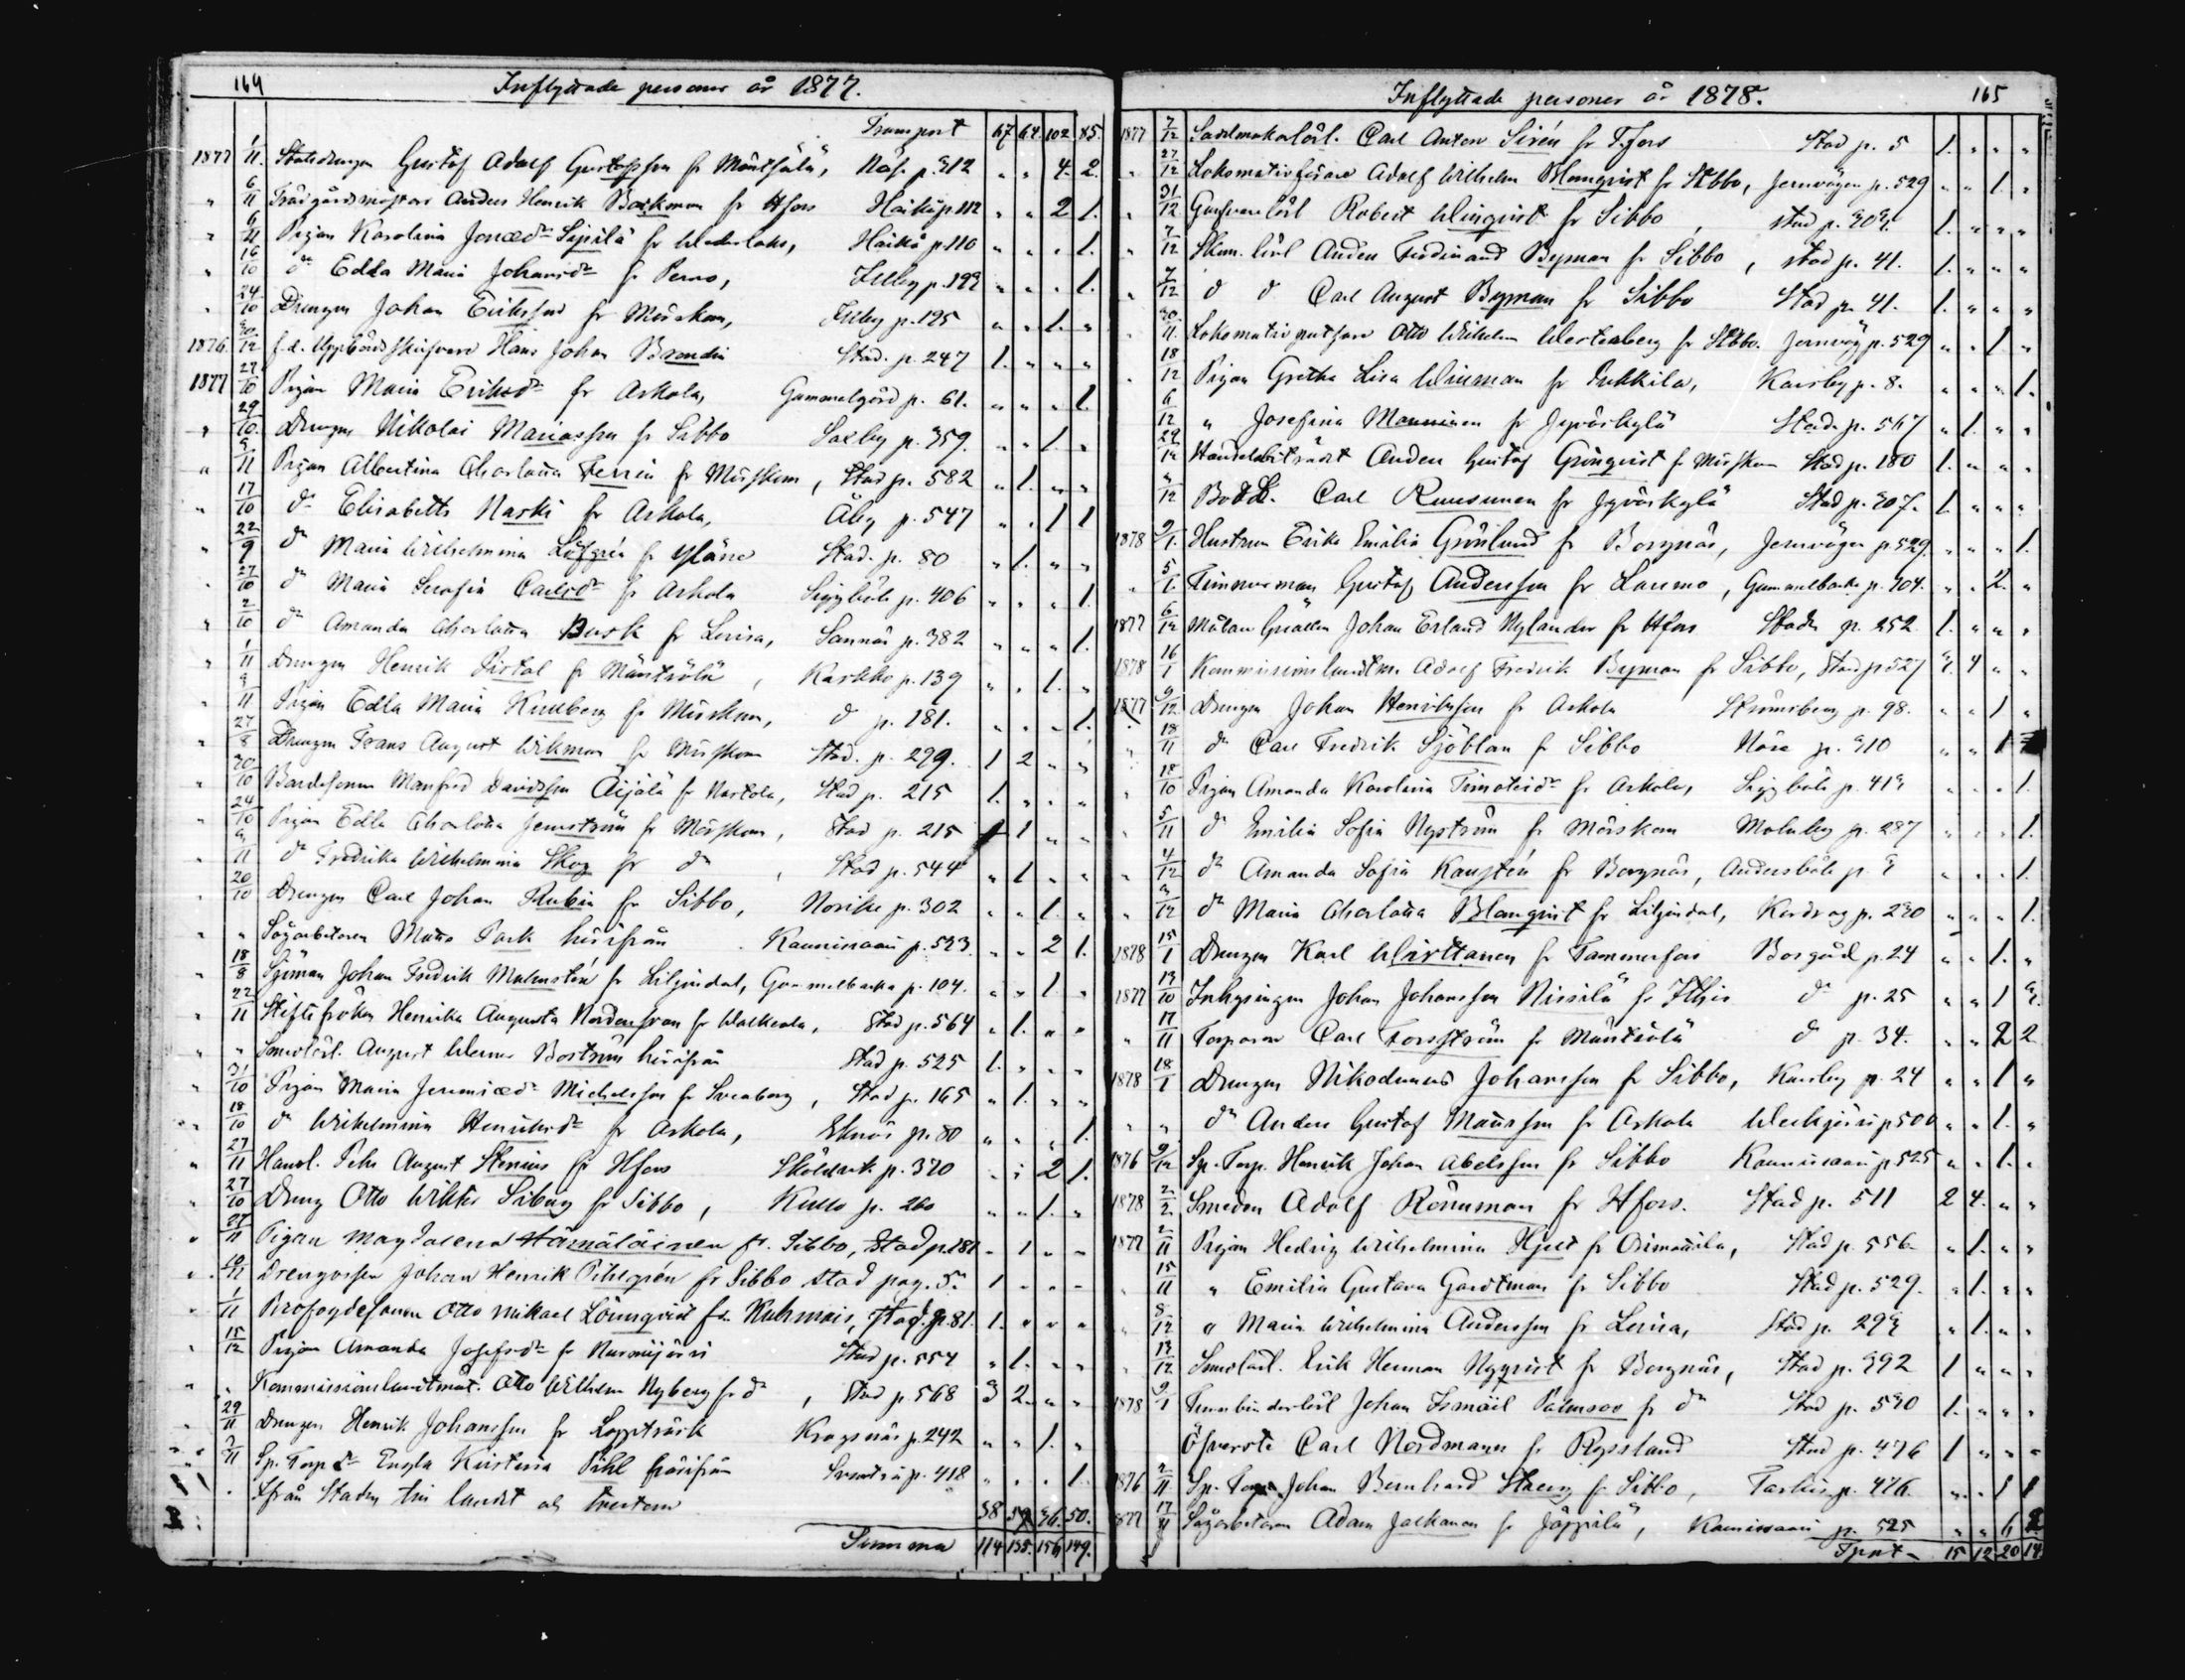 164 Inflyttade personer år 1877.
Transport 67. 64. 102. 85.
1877 1/11. Statsdrengen Gustaf Adolf Gustafsson fr Mäntsälä, Näse p. 312 " " 4. 2.
" 6/11 Trädgårdsmästare Anders Henrik Backman fr Hfors Haiko p. 112 " " 2 1.
" 6/11 Pigan Karolina Jonæd:r Seppälä fr Wederlaks, Haiko p. 110 " " " 1.
" 16/10 d:o Edla Maria Johansd:r fr Perno, Illby p. 199 " " " 1.
" 24/10 Drengen Johan Eriksson fr Mörskom, Illby p. 195 " " 1. "
1876 30/12 f.d. Uppbördsskrifvare Hans Johan Brandin Stad. p. 247 1. " " "
1877 27/10 Pigan Maria Eriksd:r fr Askola, Gammelgård p. 61. " " " 1.
" 29/10. Drengen Nikolai Mariasson fr Sibbo Saxby p. 359. " " 1. "
" 9/11 Pigan Albertina Charlotta Ferrin fr Mörskom, Stad p. 582 " 1. " "
" 17/10 d:o Elisabeth Naski fr Askola, Åby p. 547 " " 1 1
" 22/9 d:o Maria Wilhelmina Löfgrén fr Yläne Stad. p. 80 " 1. " "
" 27/10 d:o Maria Serafia Carlsd:r fr Askola Siggböle p. 406 " " " 1.
" 2/10 d:o Amanda Charlotta Bask fr Lovisa, Sannäs p. 382 " " " 1.
" 1/11 Drengen Henrik Pistol fr Mäntsälä, Karkko p. 139 " " 1. "
" 9/11 Pigan Edla Maria Kullberg fr Mörskom, d:o p. 181. " " " 1.
" 27/8 Drengen Frans August Wikman fr Mörskom Stad. p. 299. 1 2 " "
" 20/10 Bondesonen Manfred Davidsson Äijälä fr Nastola, Stad p. 215 1. " " "
" 24/10 Pigan Edla Charlotta Jernström fr Mörskom, Stad p. 215 1 " "
" 9/11 d:o Fredrika Wilhelmina Skog fr d:o, Stad p. 544 " 1 " "
" 26/10 Drengen Carl Johan Rubin fr Sibbo, Norike p. 302 " " 1. "
" " Sågarbetaren Matts Park härifrån Kaunissaari p. 523 " " 2 1.
" 18/8 Sjöman Johan Fredrik Malmstén fr Liljendal, Gammelbacka p. 104. " " 1 "
" 22/11 Stiftsfröken Henrika Augusta Nordensvan fr Walkeala, Stad p. 564 " 1. " "
" " Smedlärl. August Werner Boström härifrån Stad p. 525 1. " " "
" 31/10 Pigan Maria Jeremiæd:r Michelsson fr Sveaborg, Stad p. 165 " 1. " "
" 18/10 d:o Wilhelmina Henriksd:r fr Askola, Eknäs p. 80 " " " 1.
" 27/11 Handl. Pehr August Stenius fr Hfors Sköldvik p. 370 " " 2 1.
" 27/10 Dreng Otto Wiktor Siberg fr Sibbo, Kullo p. 260 " " 1. "
" 27/11 Pigan Magdalena Hämäläinen fr. Sibbo, Stad p. 181 " 1 " "
" 10/12 Drengossen Johan Henrik Pihlgrén fr Sibbo Stad pag. 5. 1 " " "
" 1/11 Brofogdesonen Otto Mikael Lönnqvist fr. Kuhmois, Stad. p. 81. 1. " " "
" 15/12 Pigan Amanda Josefsd:r fr Nurmijärvi Stad p. 554 " 1. " "
" " Kommissionslandtmät. Otto Wilhelm Nyberg fr d:o, Stad p. 568 3 2 " "
" 29/11 Drengen Henrik Johansson fr Lappträsk Kragsnäs p. 242 " " 1. "
" 9/11 Sp. Torp.d:r Engla Kristina Pihl härifrån p. 418 " " " 1.
Ifrån Staden till landet och tvertom 38 59 36. 50.
Summa 114 135. 156 149.
Inflyttade personer år 1878. 165
1877 7/12 Sadelmakarlärl. Carl Anton Sirén fr T.fors Stad p. 5 1. " " "
" 27/12 Lokomotivförare Adolf Wilhelm Blomqvist fr Sibbo, Jernvägen p. 529 " " 1. "
" 31/12 Garfvarelärl Robert Winqvist fr Sibbo, stad p. 303. 1. " " "
" 7/12 Skom. lärl Anders Ferdinand Byman fr Sibbo, stad p. 41. 1. " " "
" 7/12 d:o d:o Carl August Byman fr Sibbo Stad p. 41. 1. " " "
" 30/11 Lokomotivputsare Otto Wilhelm Westerberg fr Sibbo. Jernväg p. 529 " " 1 "
" 18/12 Pigan Gretha Lisa Winman fr Pukkila, Karsby p. 8. " " " 1.
6/12 " Josefina Manninen fr Jyväskylä Stad p. 567 " 1. " "
29/12 Handelsbiträdet Anders Gustaf Grönqvist fr Mörskom Stad p. 180 1. " " "
"/12 Carl Ruusunen fr Jyväskylä Stad p. 307. 1. " " "
1878 9/1. Hustrun Erika Emilia Grönlund fr Borgnäs, Jernvägen p. 529. " " " 1.
" 5/1 Timmerman Gustaf Andersson fr Laumo, Gammelbacka p. 104. " " 2. "
1877 6/12 Målare Gesällen Johan Erland Nylander fr Hfors Stad p. 252 1. " " "
1878 16/1 Kommissionslandtm. Adolf Fredrik Byman fr Sibbo, Stad p 527 3. 4 " "
1877 9/12 Drengen Johan Henriksson fr Askola Strömsberg p. 98. " " 1 "
" 18/11 d:o Carl Fredrik Sjöblom fr Sibbo Näse p. 310 " " 1
" 18/10 Pigan Amanda Karolina Timoteid:r fr Askola, Siggböle p. 413 " " " 1.
" 5/11 d:o Emilia Sofia Nyström fr Mörskom Molnby p. 287 " " " 1.
" 4/12 d:o Amanda Sofia Kanstén fr Borgnäs, Andersböle p. 3 " " " 1.
" 3/12 d:o Maria Charlotta Blomqvist fr Liljendal, Kardrag p. 230 " " " 1.
1878 15/1 Drengen Karl Wirttanen fr Tammerfors Borgård p. 24 " " 1. "
1877 13/10 Inhysingen Johan Johansson Nissilä fr Ithis d:o p. 25 " " 1 3.
" 17/11 Torparen Carl Forsström fr Mäntsälä d:o p. 34. " " 2 2
1878 18/1 Drengen Nikodemus Johansson fr Sibbo, Karsby p. 24 " " 1 "
" " d:o Anders Gustaf Mattsson fr Askola Weckjärvi p 500 " " 1. "
1876 9/12 Sp. Torp. Henrik Johan Abelsson fr Sibbo Kaunissaari p 525 " " 1. "
1878 2/2 Smeden Adolf Rönnman fr Hfors. Stad p. 511 2 4. " "
1877 2/11 Pigan Hedvig Wilhelmina Hjelt fr Orimattila, Stad p. 556. " 1. " "
15/11 " Emilia Gustava Gardtman fr Sibbo Stad p. 529. " 1. " "
8/12 " Maria Wilhelmina Andersson fr Lovisa, Stad p. 293 " 1. " "
" 13/12 Smedlärl. Erik Herman Nyqvist fr Borgnäs, Stad p. 392 1 " " "
1878 9/1 Johan Ismäil Palmroos fr d:o Stad p. 530 1. " " "
Öfverste Carl Nordmann fr Ryssland Stad p. 476 1 " " "
1876 2/11 Sp. Torp. Johan Bernhard Stberg fr Sibbo, Tarkis p. 476. " " 1 1
1877 17/11 Sågarbetaren Adam Jalkanen fr Jäppilä, Kaunissaari p. 525 " " 6 2
Tpnt 15 12 20 14